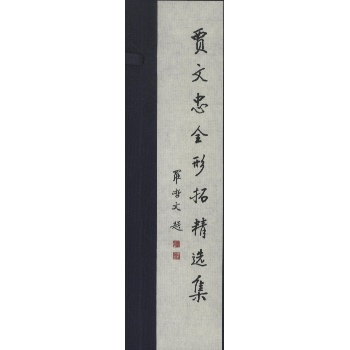 贾文忠全形拓精选集
罗哲文题